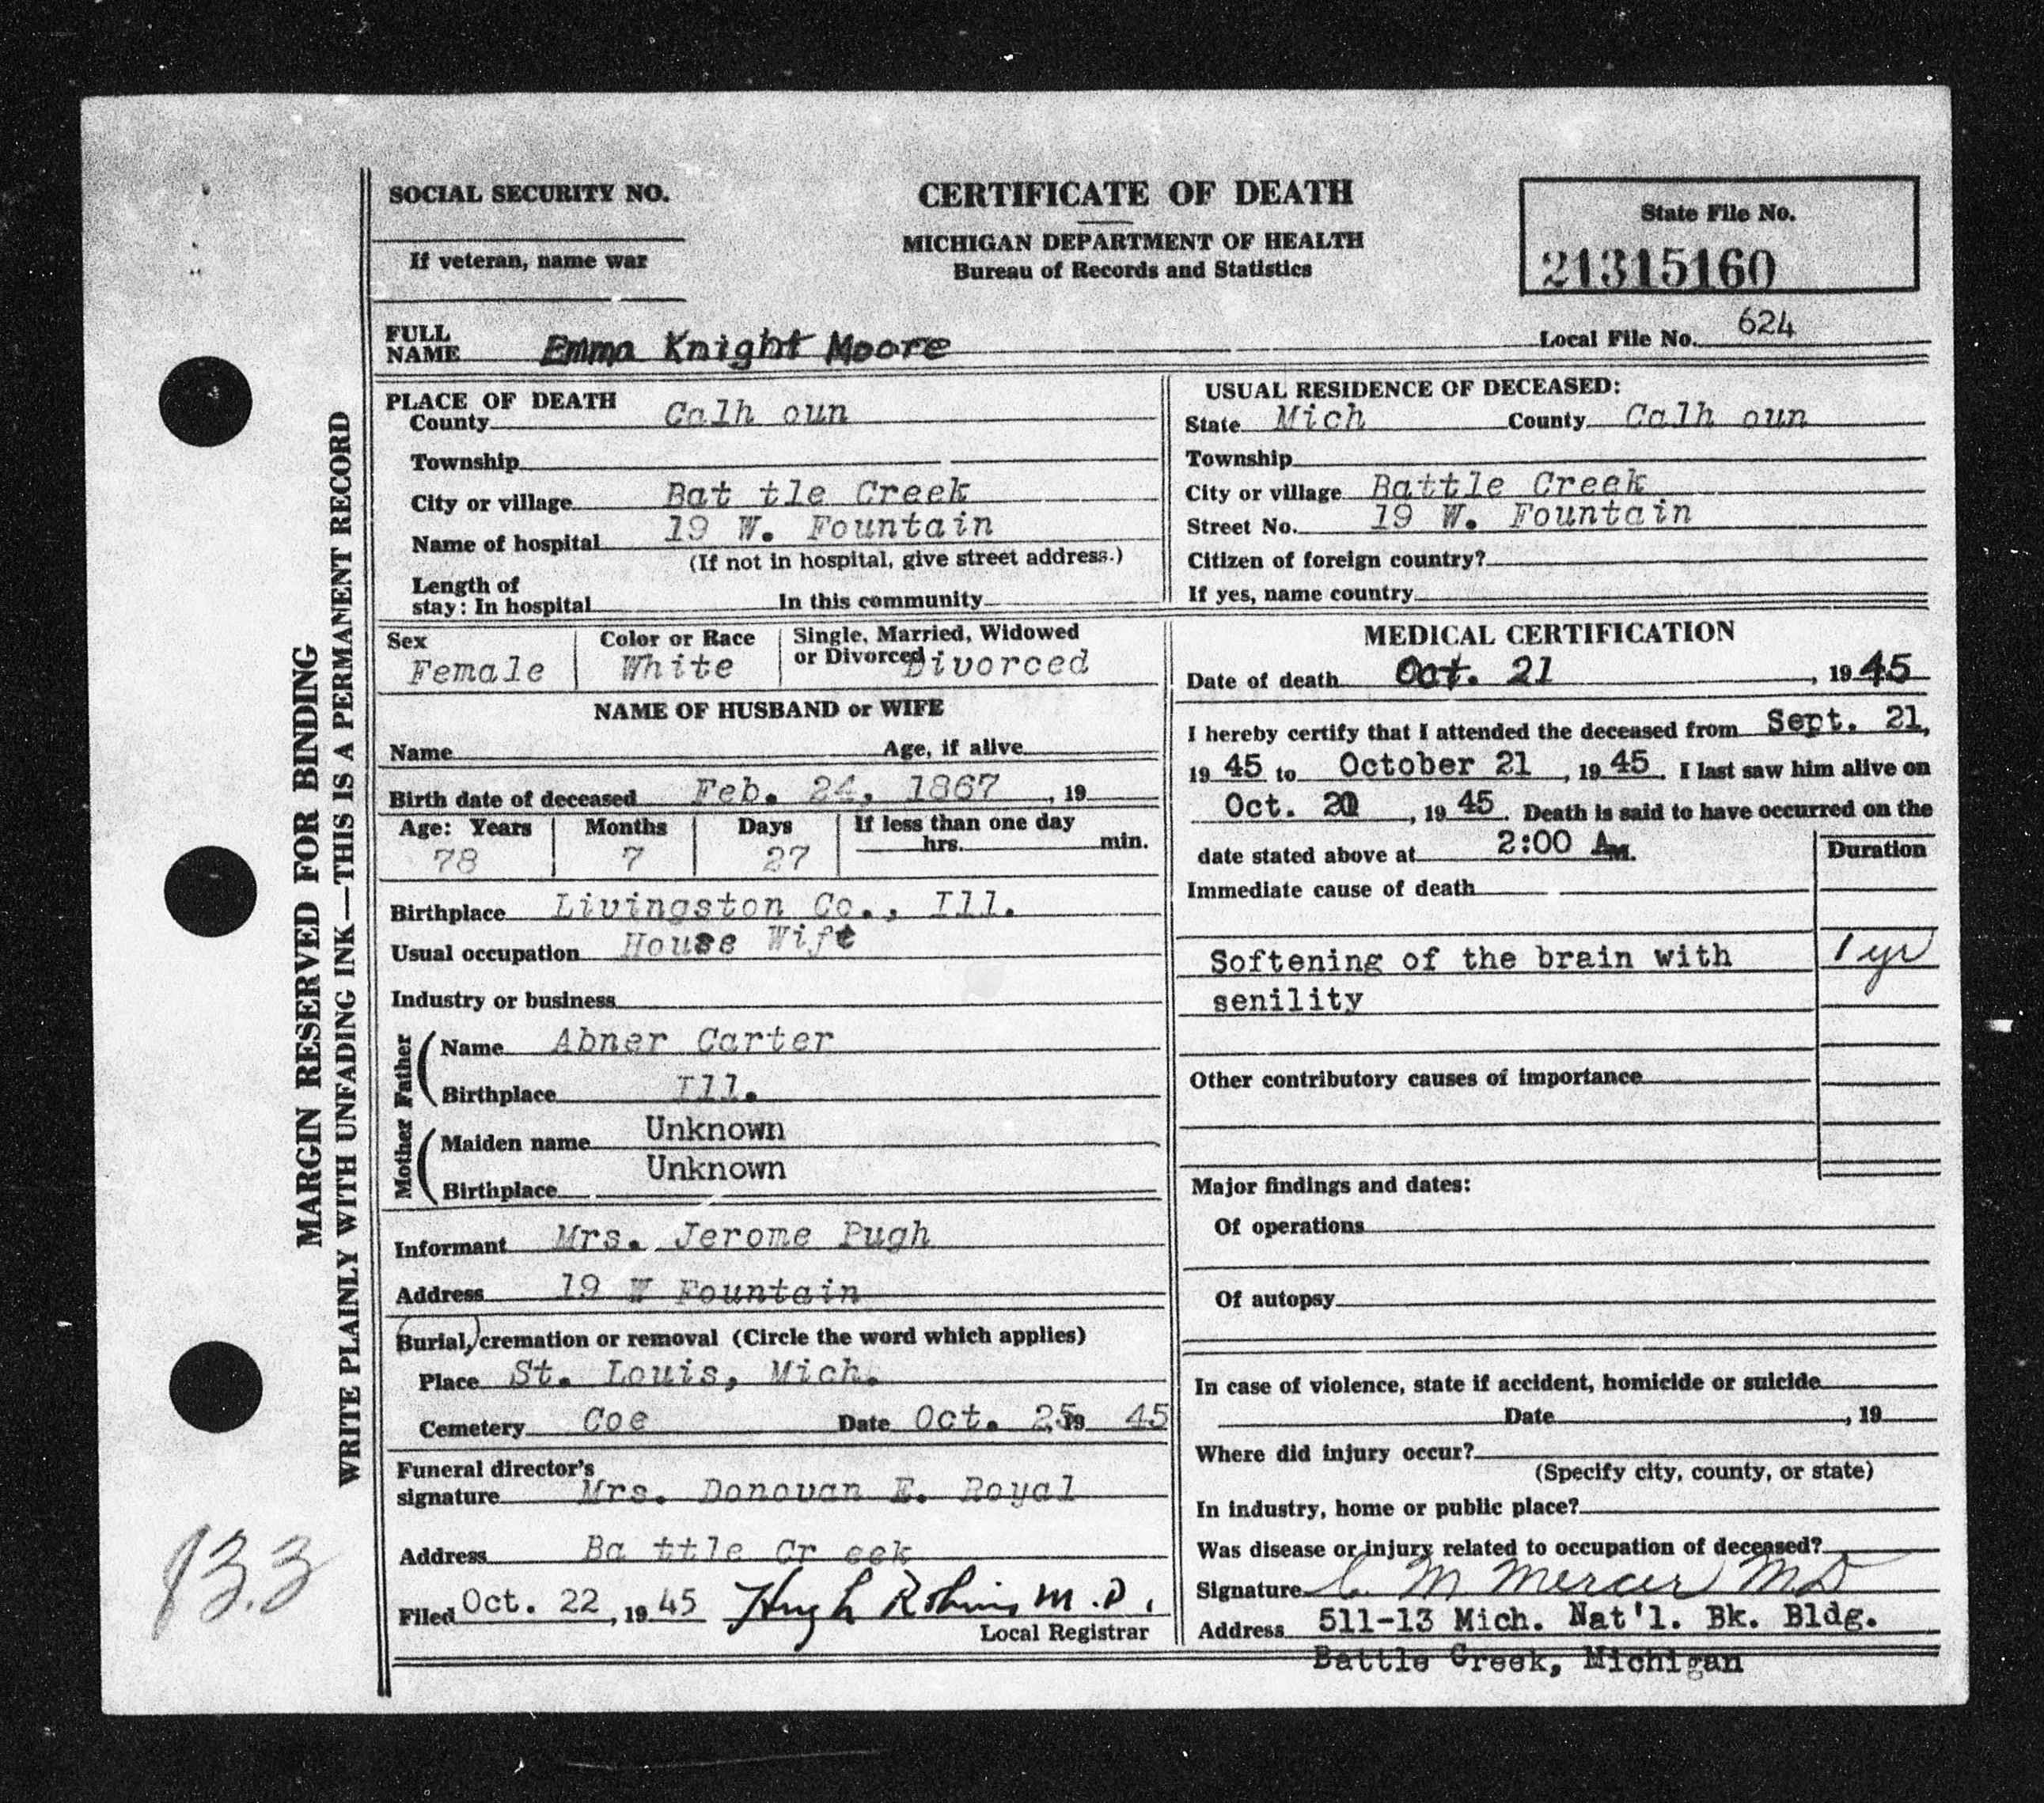 SOCIAL SECURITY NO.
If veteran, name war
CERTIFICATE OF DEATH
MICHIGAN DEPARTMENT OF HEALTH
Bureau of Records and Statistics
State File No.
21315160
Local File No. 624
FULL NAME Emma Knight Moore
MARGIN RESERVED FOR BINDING
WRITE PLAINLY WITH UNFADING INK—THIS IS A PERMANENT RECORD
PLACE OF DEATH
County Calh oun
Township
City or village Bat tle Creek
Name of hospital 19 W. Fountain
(If not in hospital, give street address.)
Length of
stay: In hospital In this community
USUAL RESIDENCE OF DECEASED:
State Mich County Calh oun
Township
City or village Battle Creek
Street No. 19 W. Fountain
Citizen of foreign country?
If yes, name country
Sex Female
Color or Race White
Single, Married, Widowed
or Divorced Divorced
NAME OF HUSBAND or WIFE
Name Age, if alive
Birth date of deceased Feb. 24, 1867, 19
Age: Years Months Days If less than one day
78 7 27 hrs. min.
Birthplace Livingston Co., Ill.
Usual occupation House Wife
Industry or business
Father
Name Abner Carter
Birthplace Ill.
Mother
Maiden name Unknown
Birthplace Unknown
Informant Mrs. Jerome Pugh
Address 19 W Fountain
Burial, cremation or removal (Circle the word which applies)
Place St. Louis, Mich.
Cemetery Coe Date Oct. 25, 19 45
Funeral director's
signature Mrs. Donovan E. Royal
Address Ba ttle Cr eek
Filed Oct. 22, 19 45 Hugh Robins M.D.
Local Registrar
MEDICAL CERTIFICATION
Date of death Oct. 21, 19 45
I hereby certify that I attended the deceased from Sept. 21,
19 45 to October 21, 19 45. I last saw him alive on
Oct. , 19 45. Death is said to have occurred on the
date stated above at 2:00 AM.
Duration
Immediate cause of death
Softening of the brain with 1 yr
senility
Other contributory causes of importance
Major findings and dates:
Of operations
Of autopsy
In case of violence, state if accident, homicide or suicide
Date , 19
Where did injury occur?
(Specify city, county, or state)
In industry, home or public place?
Was disease or injury related to occupation of deceased?
Signature C. M. Mercer MD
Address 511-13 Mich. Nat'l. Bk. Bldg.
Battle Creek, Michigan